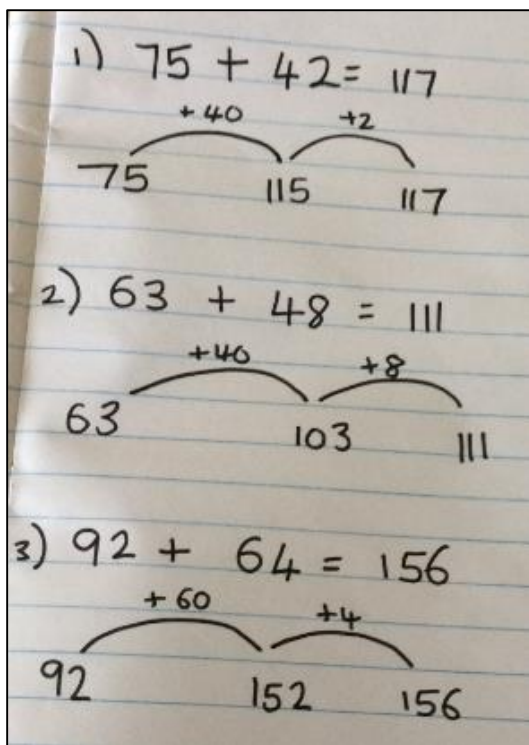 1) 75 + 42 = 117
+40 +2
75 115 117
2) 63 + 48 = 111
+40 +8
63 103 111
3) 92 + 64 = 156
+60 +4
92 152 156